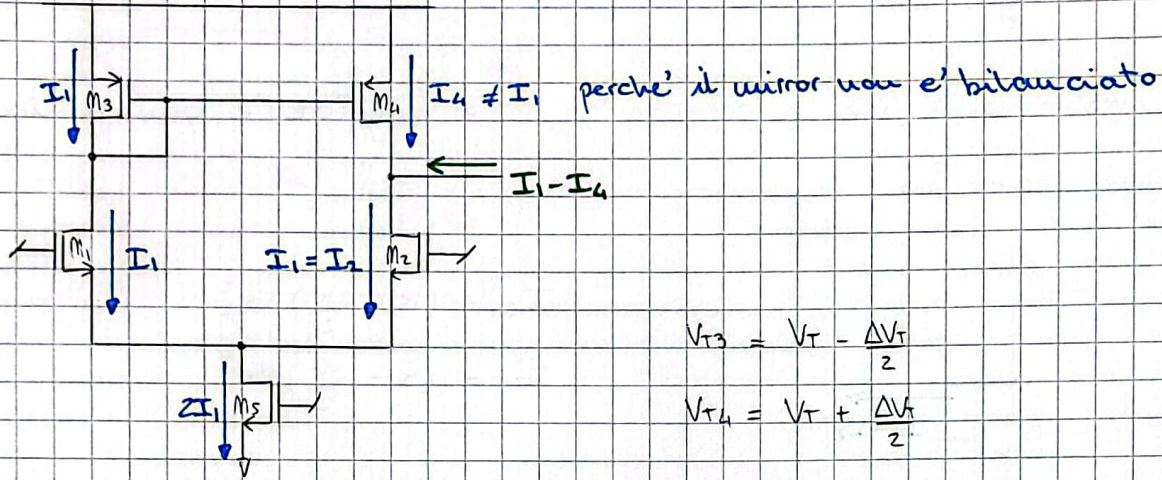 I₁ M₃ M₄ I₄ ≠ I₁ perché il mirror non e' bilanciato
I₁ - I₄
M₁ I₁ I₁ = I₂ M₂
V_T3 = V_T - ΔV_T/2
2I₁ M₅
V_T4 = V_T + ΔV_T/2